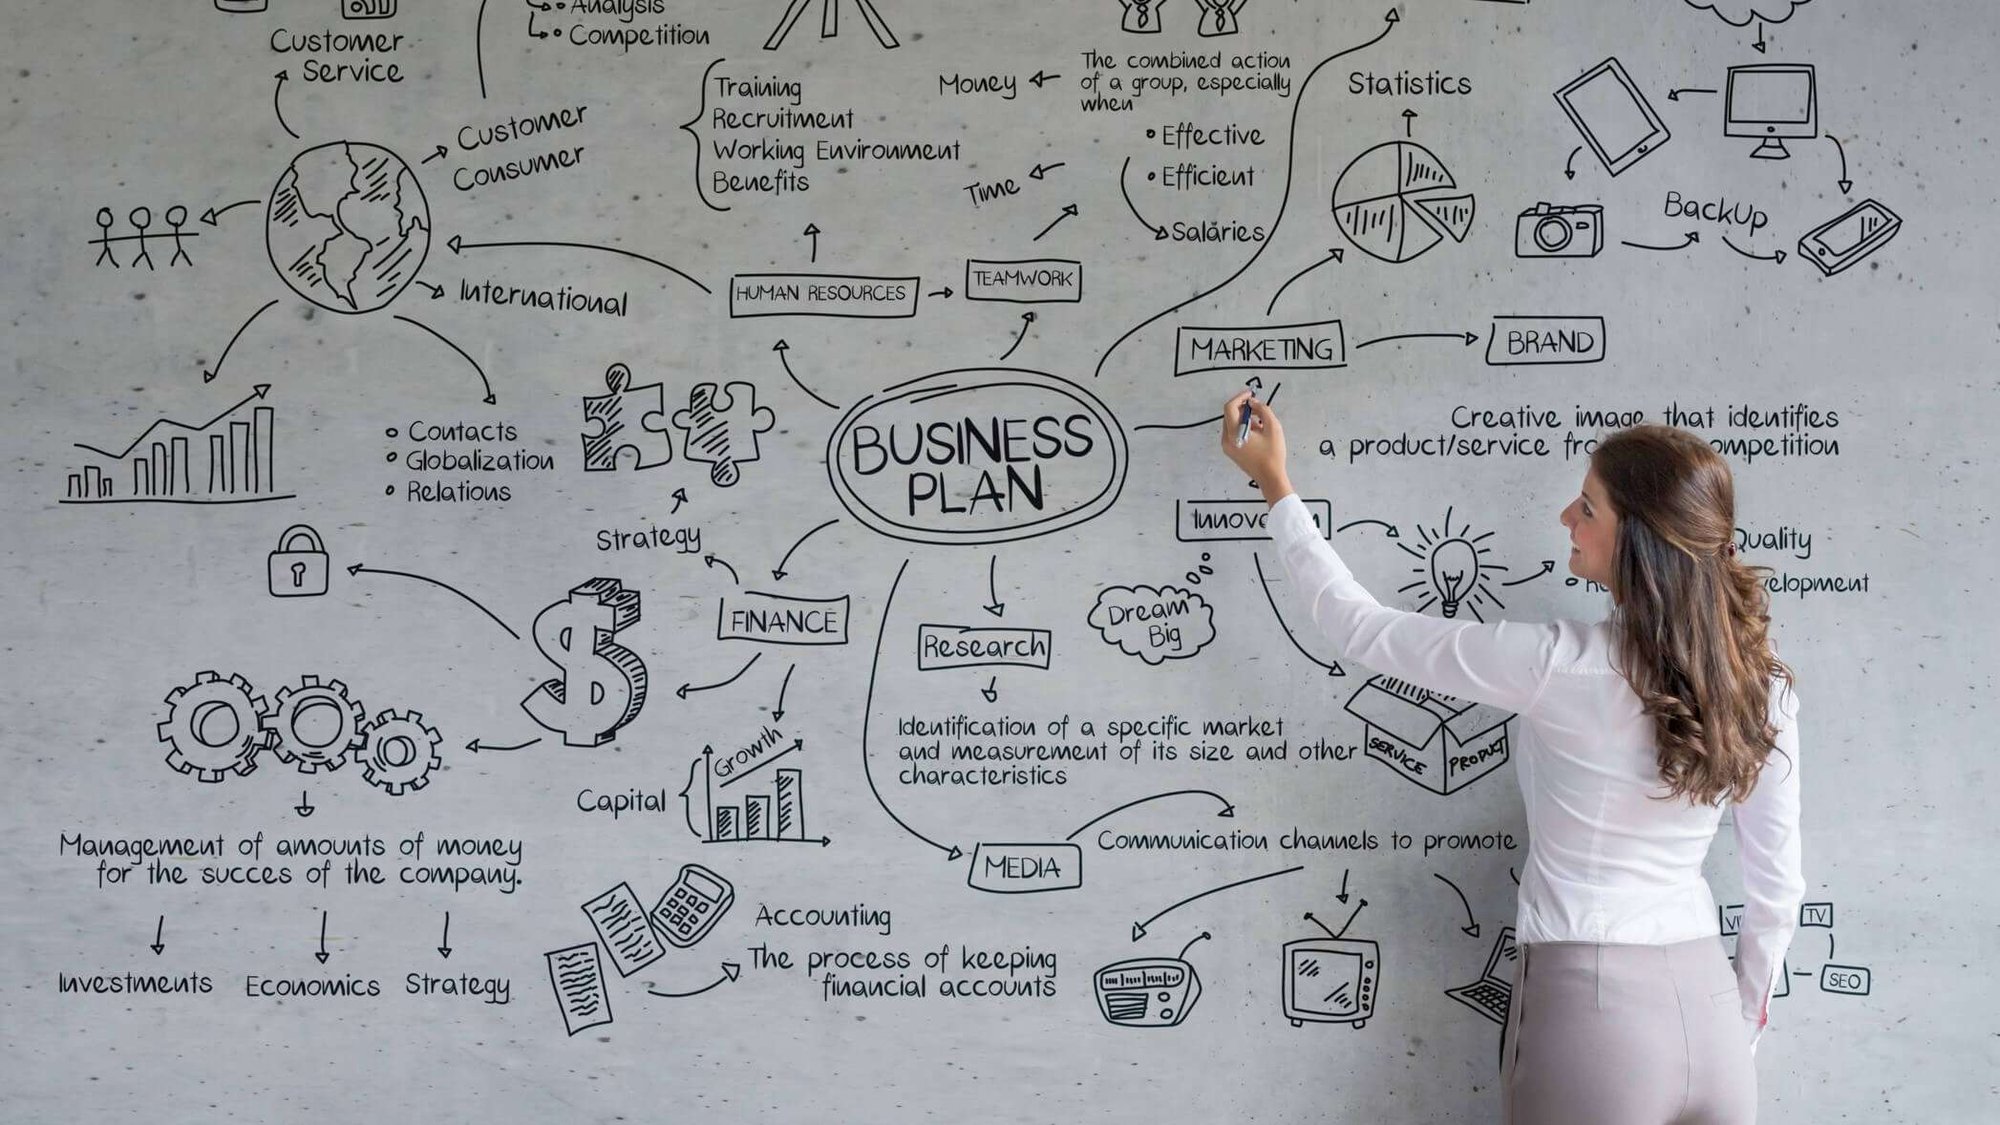 Analysis
Competition
Customer
Service
Customer
Consumer
International
Contacts
Globalization
Relations
Training
Recruitment
Working Environment
Benefits
HUMAN RESOURCES
TEAMWORK
Money
The combined action
of a group, especially
when
Effective
Efficient
Salaries
Time
Statistics
BackUp
MARKETING
BRAND
Creative image that identifies
a product/service
BUSINESS
PLAN
Strategy
FINANCE
Research
Identification of a specific market
and measurement of its size and other
characteristics
Dream
Big
Quality
SERVICE
PRODUCT
Growth
Capital
Management of amounts of money
for the succes of the company.
Investments
Economics
Strategy
Accounting
The process of keeping
financial accounts
MEDIA
Communication channels to promote
TV
SEO